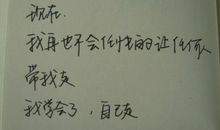 现在.
我再也不会任性的让任何人
带我走
我学会了，自己走